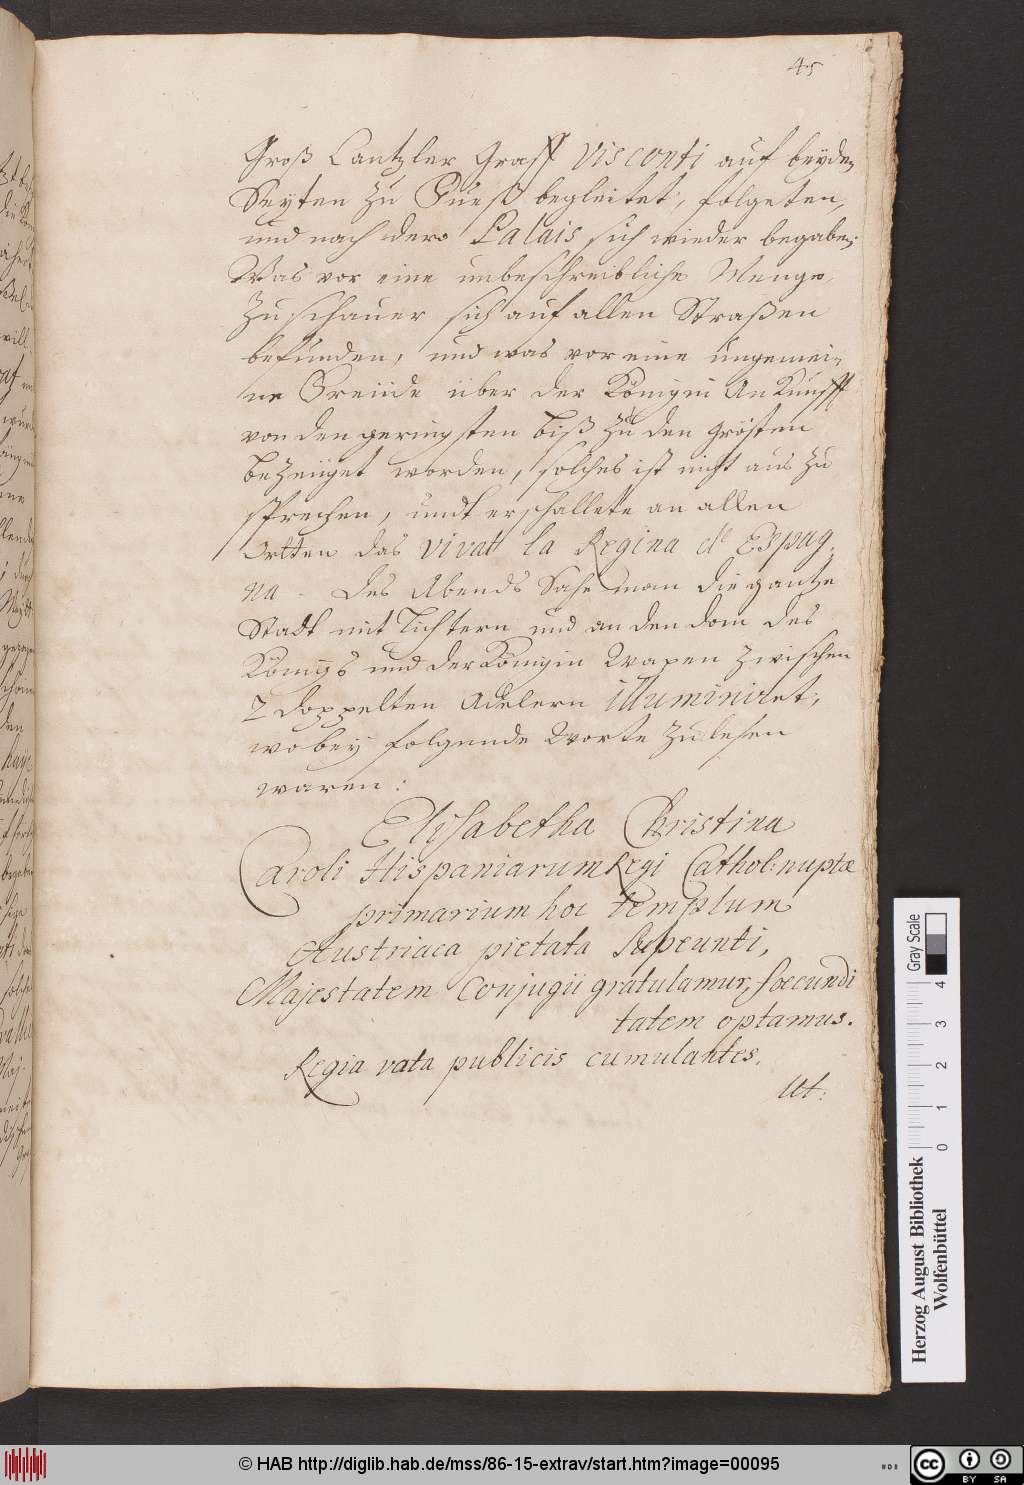 45
Groß Cantzler Graff Visconti auf beyden
Seyten zu Pueß begleitet, folgeten,
und nach dero Palais sich wieder begaben;
Was vor eine unbeschreibliche Menge
Zuschauer sich auf allen Straßen
befunden, und was vor eine ungemei-
ne Freüde über der Königin Ankunfft
von den geringsten biß zu den Grösten
bezeüget worden, solches ist nicht aus zu
sprechen, undt erschallete an allen
Ortten das vivat la Regina d' Espag-
na. Des Abends Sahe man die gantze
Stadt mit Lichtern und an den dom des
Königs und der Königin Wapen zwischen
2 doppelten Adelern illuminiret,
wobey folgende Worte zu lesen
waren:
Elisabetha Christina
Caroli Hispaniarum Regi Cathol: nuptæ
primarium hoc templum
Austriaca pietata subeunti,
Majestatem Conjugii gratulamur, foecundi
tatem optamus.
Regia vata publicis cumulantes.
Ut:
Herzog August Bibliothek
Wolfenbüttel
0 1 2 3 4
Gray Scale
© HAB http://diglib.hab.de/mss/86-15-extrav/start.htm?image=00095
cc BY SA